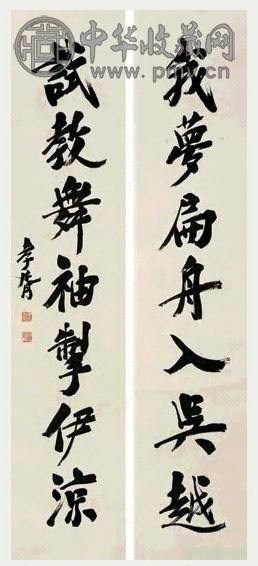 中华收藏网
www.pmcv.cn
我夢扁舟入吳越
試教舞袖掣伊涼
孝胥